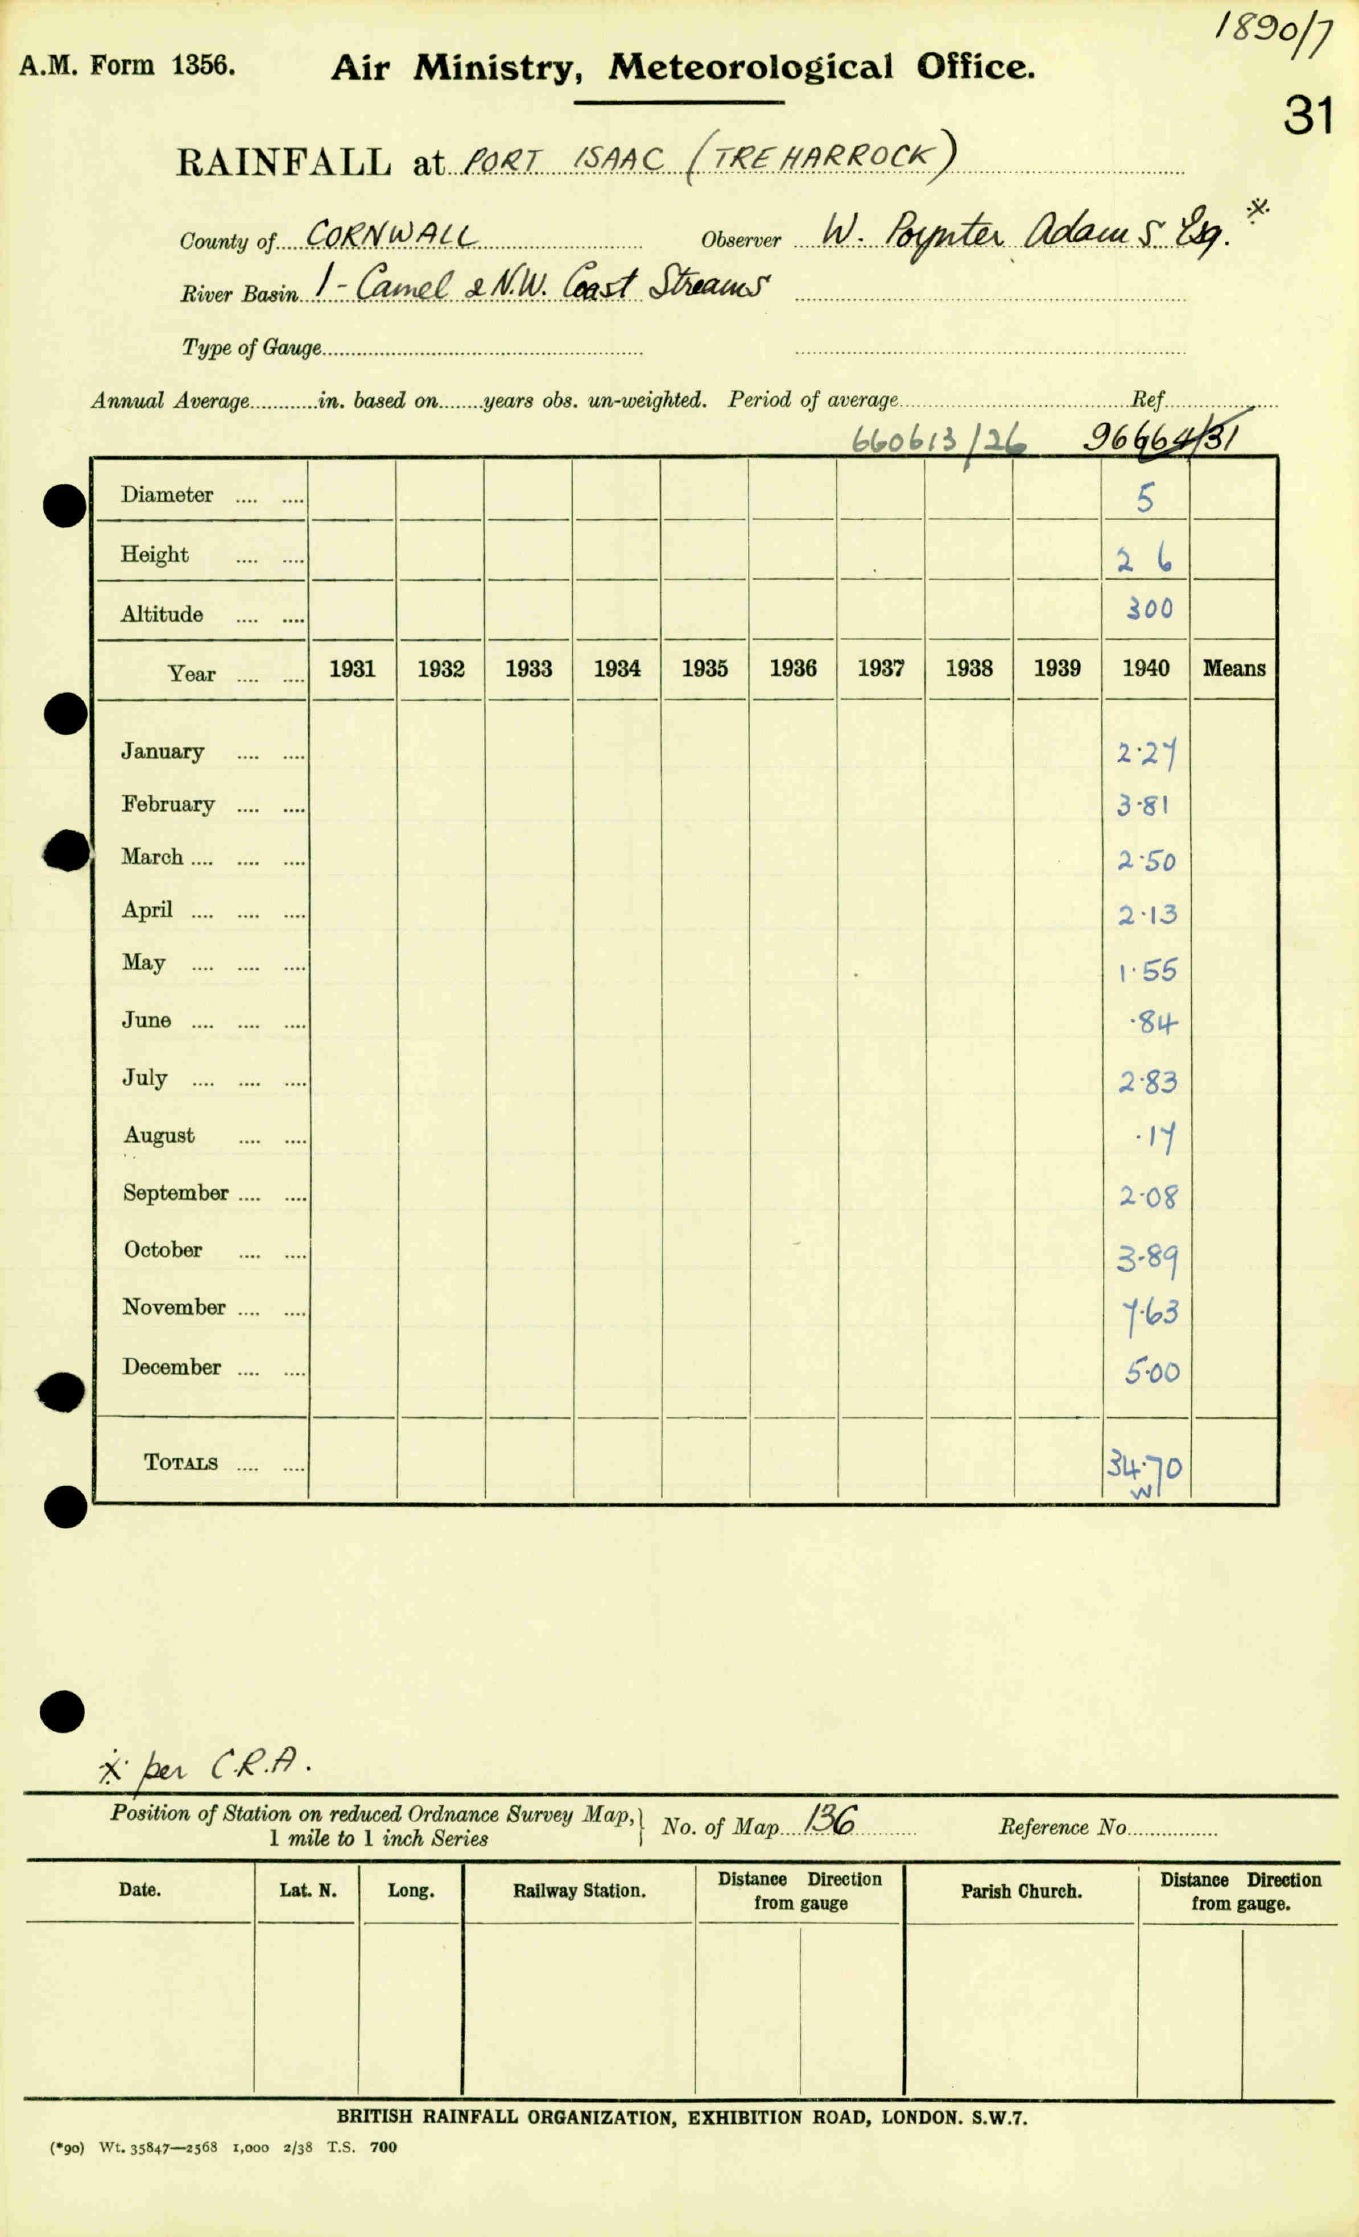 1890/7
A.M. Form 1356. Air Ministry, Meteorological Office.
31
RAINFALL at PORT ISAAC (TREHARROCK)
County of CORNWALL Observer W. Poynter Adams Esq. *
River Basin 1 - Camel & N.W. Coast Streams
Type of Gauge
Annual Average in. based on years obs. un-weighted. Period of average Ref
660613/26 96664/31
Diameter 5
Height 2 6
Altitude 300
Year 1931 1932 1933 1934 1935 1936 1937 1938 1939 1940 Means
January 2.27
February 3.81
March 2.50
April 2.13
May 1.55
June .84
July 2.83
August .17
September 2.08
October 3.89
November 7.63
December 5.00
TOTALS 34.70
W
* per C.R.A.
Position of Station on reduced Ordnance Survey Map, 1 mile to 1 inch Series } No. of Map 136 Reference No
Date. Lat. N. Long. Railway Station. Distance Direction from gauge Parish Church. Distance Direction from gauge.
BRITISH RAINFALL ORGANIZATION, EXHIBITION ROAD, LONDON. S.W.7.
(*90) Wt. 35847—2568 1,000 2/38 T.S. 700